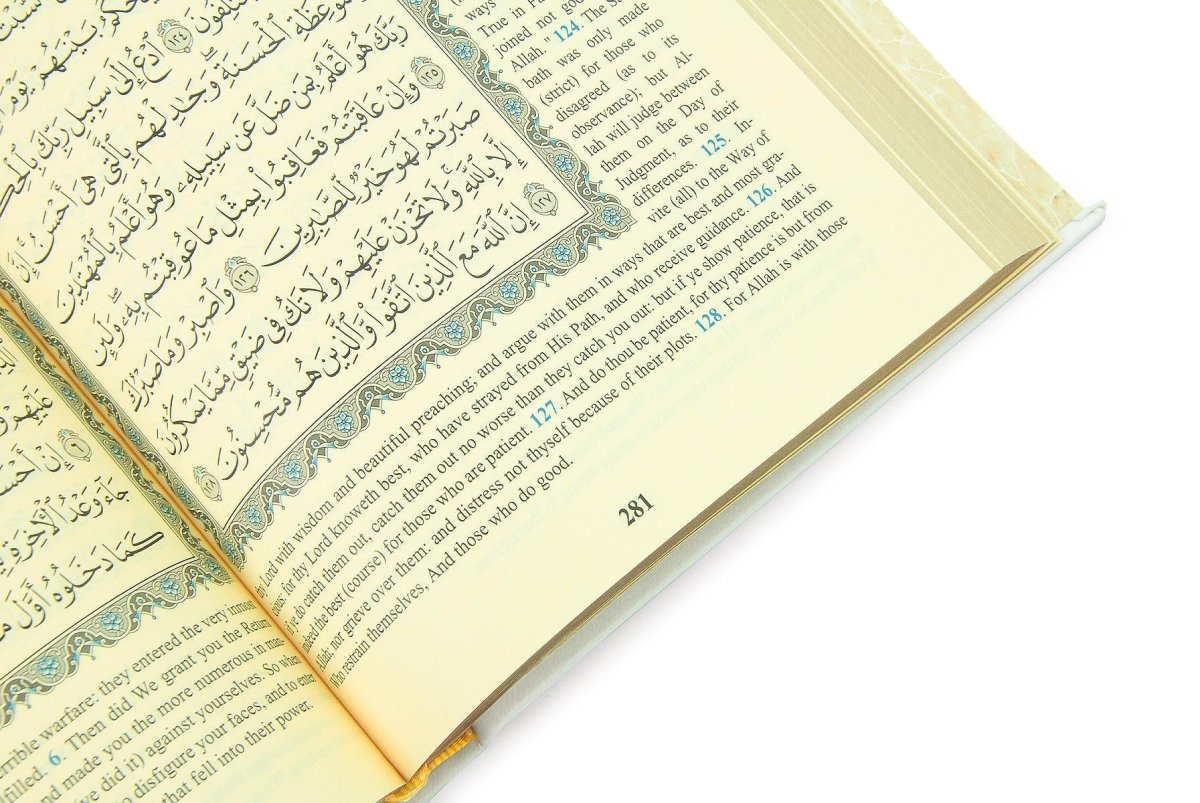 لَيَحْكُمُ بَيْنَهُمْ يَوْمَ
تَلِفُونَ ١٢٤ ٱدْعُ إِلَىٰ سَبِيلِ رَبِّكَ بِٱلْحِكْ
وْعِظَةِ ٱلْحَسَنَةِ وَجَٰدِلْهُم بِٱلَّتِى هِىَ أَحْسَنُ إِنَّ
رَبَّكَ هُوَ أَعْلَمُ بِمَن ضَلَّ عَن سَبِيلِهِۦ وَهُوَ أَعْلَمُ بِٱلْمُهْتَدِينَ
١٢٥ وَإِنْ عَاقَبْتُمْ فَعَاقِبُوا۟ بِمِثْلِ مَا عُوقِبْتُم بِهِۦ وَلَئِن
صَبَرْتُمْ لَهُوَ خَيْرٌ لِّلصَّٰبِرِينَ ١٢٦ وَٱصْبِرْ وَمَا صَبْرُكَ
إِلَّا بِٱللَّهِ وَلَا تَحْزَنْ عَلَيْهِمْ وَلَا تَكُ فِى ضَيْقٍ مِّمَّا يَمْكُرُونَ
١٢٧ إِنَّ ٱللَّهَ مَعَ ٱلَّذِينَ ٱتَّقَوا۟ وَّٱلَّذِينَ هُم مُّحْسِنُونَ ١٢٨
ways
True in
joined not go
Allah." 124. The S
bath was only made
(strict) for those who
disagreed (as to its
observance); but Al-
lah will judge between
them on the Day of
Judgment, as to their
differences. 125. In-
vite (all) to the Way of
thy Lord with wisdom and beautiful preaching; and argue with them in ways that are best and most gra-
cious: for thy Lord knoweth best, who have strayed from His Path, and who receive guidance. 126. And
if ye do catch them out, catch them out no worse than they catch you out: but if ye show patience, that is
indeed the best (course) for those who are patient. 127. And do thou be patient, for thy patience is but from
Allah; nor grieve over them: and distress not thyself because of their plots. 128. For Allah is with those
Who restrain themselves, And those who do good.
281
عَلَيْهِمْ وَ
٦ إِنْ أَحْسَ
جَآءَ وَعْدُ ٱلْءَاخِرَةِ
كَمَا دَخَلُوهُ أَوَّلَ مَ
errible warfare: they entered the very inmost
filled. 6. Then did We grant you the Return
and made you the more numerous in man-
ye did it) against yourselves. So when
o disfigure your faces, and to enter
that fell into their power.